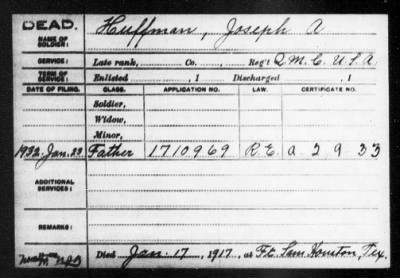 DEAD.
NAME OF SOLDIER:
Huffman, Joseph A
SERVICE:
Late rank, Co. , Reg't Q.M.C. U.S.A.
TERM OF SERVICE:
Enlisted , 1 Discharged , 1
DATE OF FILING. CLASS. APPLICATION NO. LAW. CERTIFICATE NO.
Soldier,
Widow,
Minor,
1932, Jan. 23 Father 1710969 R.E. a 2933
ADDITIONAL SERVICES:
REMARKS:
Died Jan. 17, 1917, at Ft. Sam Houston, Tex.